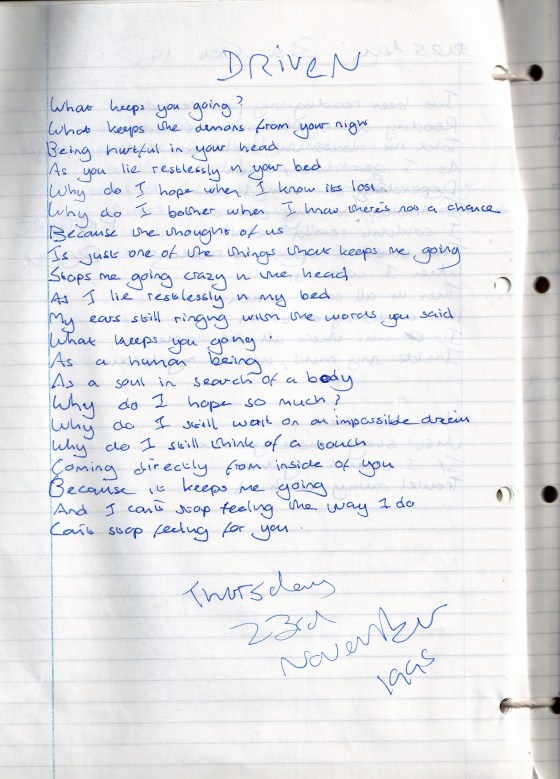 DRIVEN
What keeps you going?
What keeps the demons from your night
Being hurtful in your head
As you lie restlessly in your bed
Why do I hope when I know its lost.
Why do I bother when I know there's not a chance
Because the thought of us
Is just one of the things that keeps me going
Stops me going crazy in the head
As I lie restlessly in my bed
My ears still ringing with the words you said
What keeps you going.
As a human being
As a soul in search of a body
Why do I hope so much?
Why do I still wait on an impossible dream
Why do I still think of a touch
Coming directly from inside of you
Because it keeps me going
And I can't stop feeling the way I do
Can't stop feeling for you.
Thursday
23rd
November
1995